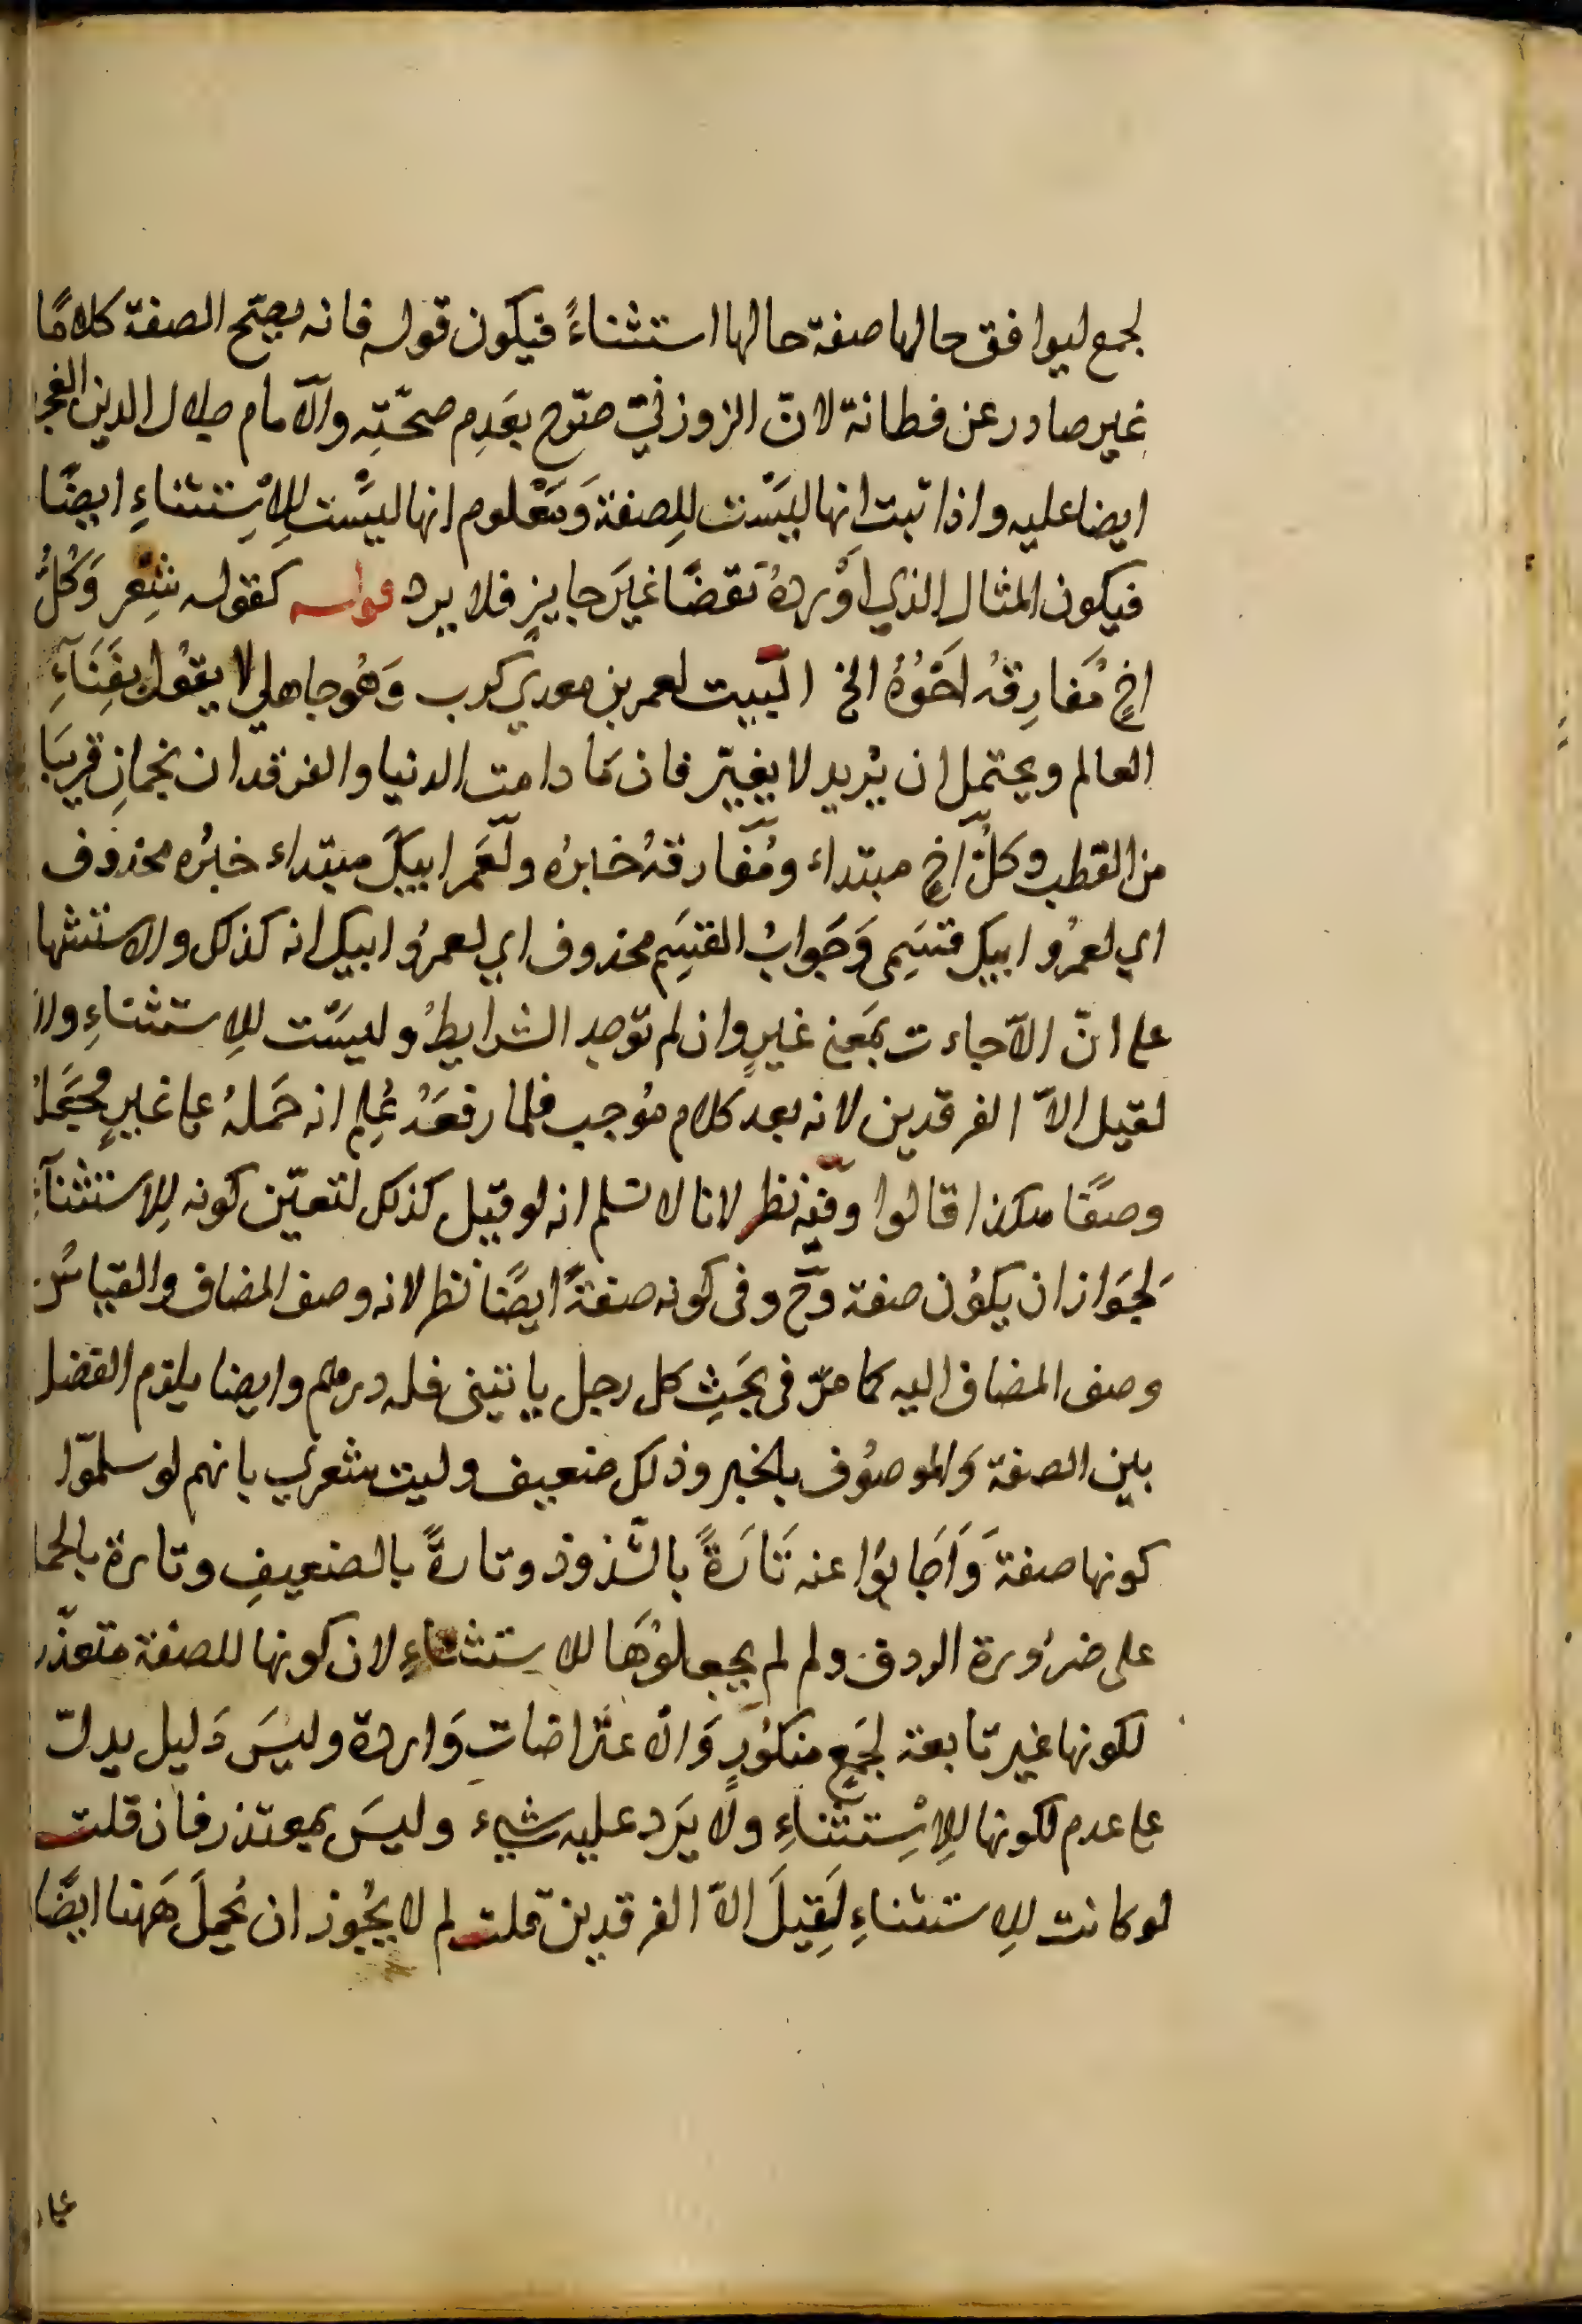 لجمع ليوافق حالها صفة حالها استثناءً فيكون قوله فانه يصحّ الصفة كلامًا
غير صادر عن فطانة لانّ الزوزنيّ صرّح بعَدِم صحّتِه والامام جلال الدين الغجد
ايضا عليه واذا ثبت انها ليسَْت لِلصفة وَمَعْلوم انها ليسَْت لِلاِسْتِثناءِ ايضًا
فيكون المثال الذي اوْردهُ نقضًا غيَر جايزٍ فلا يرد قوله كقوله شِعْر وَكُلُّ
اخٍ مُفارِقهُ اَخُوْهُ الخ البَيت لعمر بن معدي كرب وَهُو جاهلي لا يقوْل بفَنَآءِ
العالم ويحتمل ان يُريد لا يغيّر فان مَا دامت الدنيا والفرقدان نجمانِ قريبَا
من القطب وكلّ اخٍ مبتداء ومُفارقهُ خبرهُ ولَعَمر ابيكَ مبتداء خبرُه محذوف
اي لعمرُو ابيك قسَمِى وَجَوابُ القسَمِ محذوف اي لعمرُو ابيك انه كذلك والاستشها
على انّ الاّ جاءت بمَعنى غيرٍ وان لم توجد الشرايطُ وليسَْت للِاستثناءِ والا
لقيل الاّ الفرقدين لانه بعد كلام مُوجب فلما رفعَهُ عُلِم انه حَملهُ على غيرٍ فجَعَلهُ
وصفًا هكذا قالوا وفيْه نظر لانا لا نسلم انه لو قيل كذلك لتعيّن كونه لِلاستثنآءِ
لجَوَاز ان يكوُن صفة وحّ وفى كونه صفةً ايضًا نظر لانه وصف المضاف والقياسُ
وصف المضاف اليه كما مرّ فى بحَثِ كل رجل ياتينى فله درهم وايضا يلزم الفضل
بين الصفة وَالموصوُف بالخبر وذلك ضعيف وليت شعري بانهم لو سلموّا
كونها صفةَ وَاَجَابوُا عنه تَارَةً بالشّذوذ وتارةً بالضعيفِ وتارة بالحما
على ضرُورة الردف ولم لم يجعلوُهَا للاستثناءِ لان كونها للصفة متعذّر
لكونها غير تابعة لجَمعٍ منكوُرٍ وَالاعتراضات وَاردة وليسَ دَليل يدلّ
على عدم لكونها لِلاِسْتِثناءِ ولا يَرد عليه شيء وليسَ بمعتذر فان قلت
لو كانت للِاستثناءِ لَقِيلَ الاّ الفرقدين قلت لم لا يجُوز ان يُحمِلَ هَهنا ايضًا